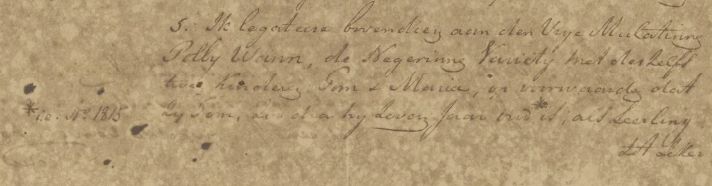 5. Ik legateere bovendien aan den Vrye Mulattinne
Polly Wann, de Negerinne Variety met derzelfs
twee kinderen Tom & Maria, op voorwaarde dat
zy Tom, zoodra hy zeven Jaar oud is, als Leerling
*i.e. No. 1815